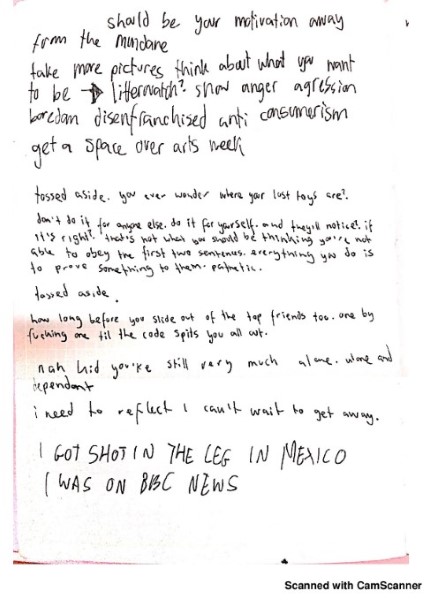 should be your motivation away
from the mundane
take more pictures think about what you want
to be → litterwatch? show anger agression
boredom disenfranchised anti consumerism
get a space over arts week
tossed aside. you ever wonder where your lost toys are?
don't do it for anyone else. do it for yourself. and they'll notice? if
it's right? that's not what you should be thinking you're not
able to obey the first two sentences. everything you do is
to prove something to them. pathetic.
tossed aside.
how long before you slide out of the top friends too. one by
fucking one til the code spits you all out.
nah kid you're still very much alone. alone and
dependant
i need to reflect I can't wait to get away.
I GOT SHOT IN THE LEG IN MEXICO
I WAS ON BBC NEWS
Scanned with CamScanner